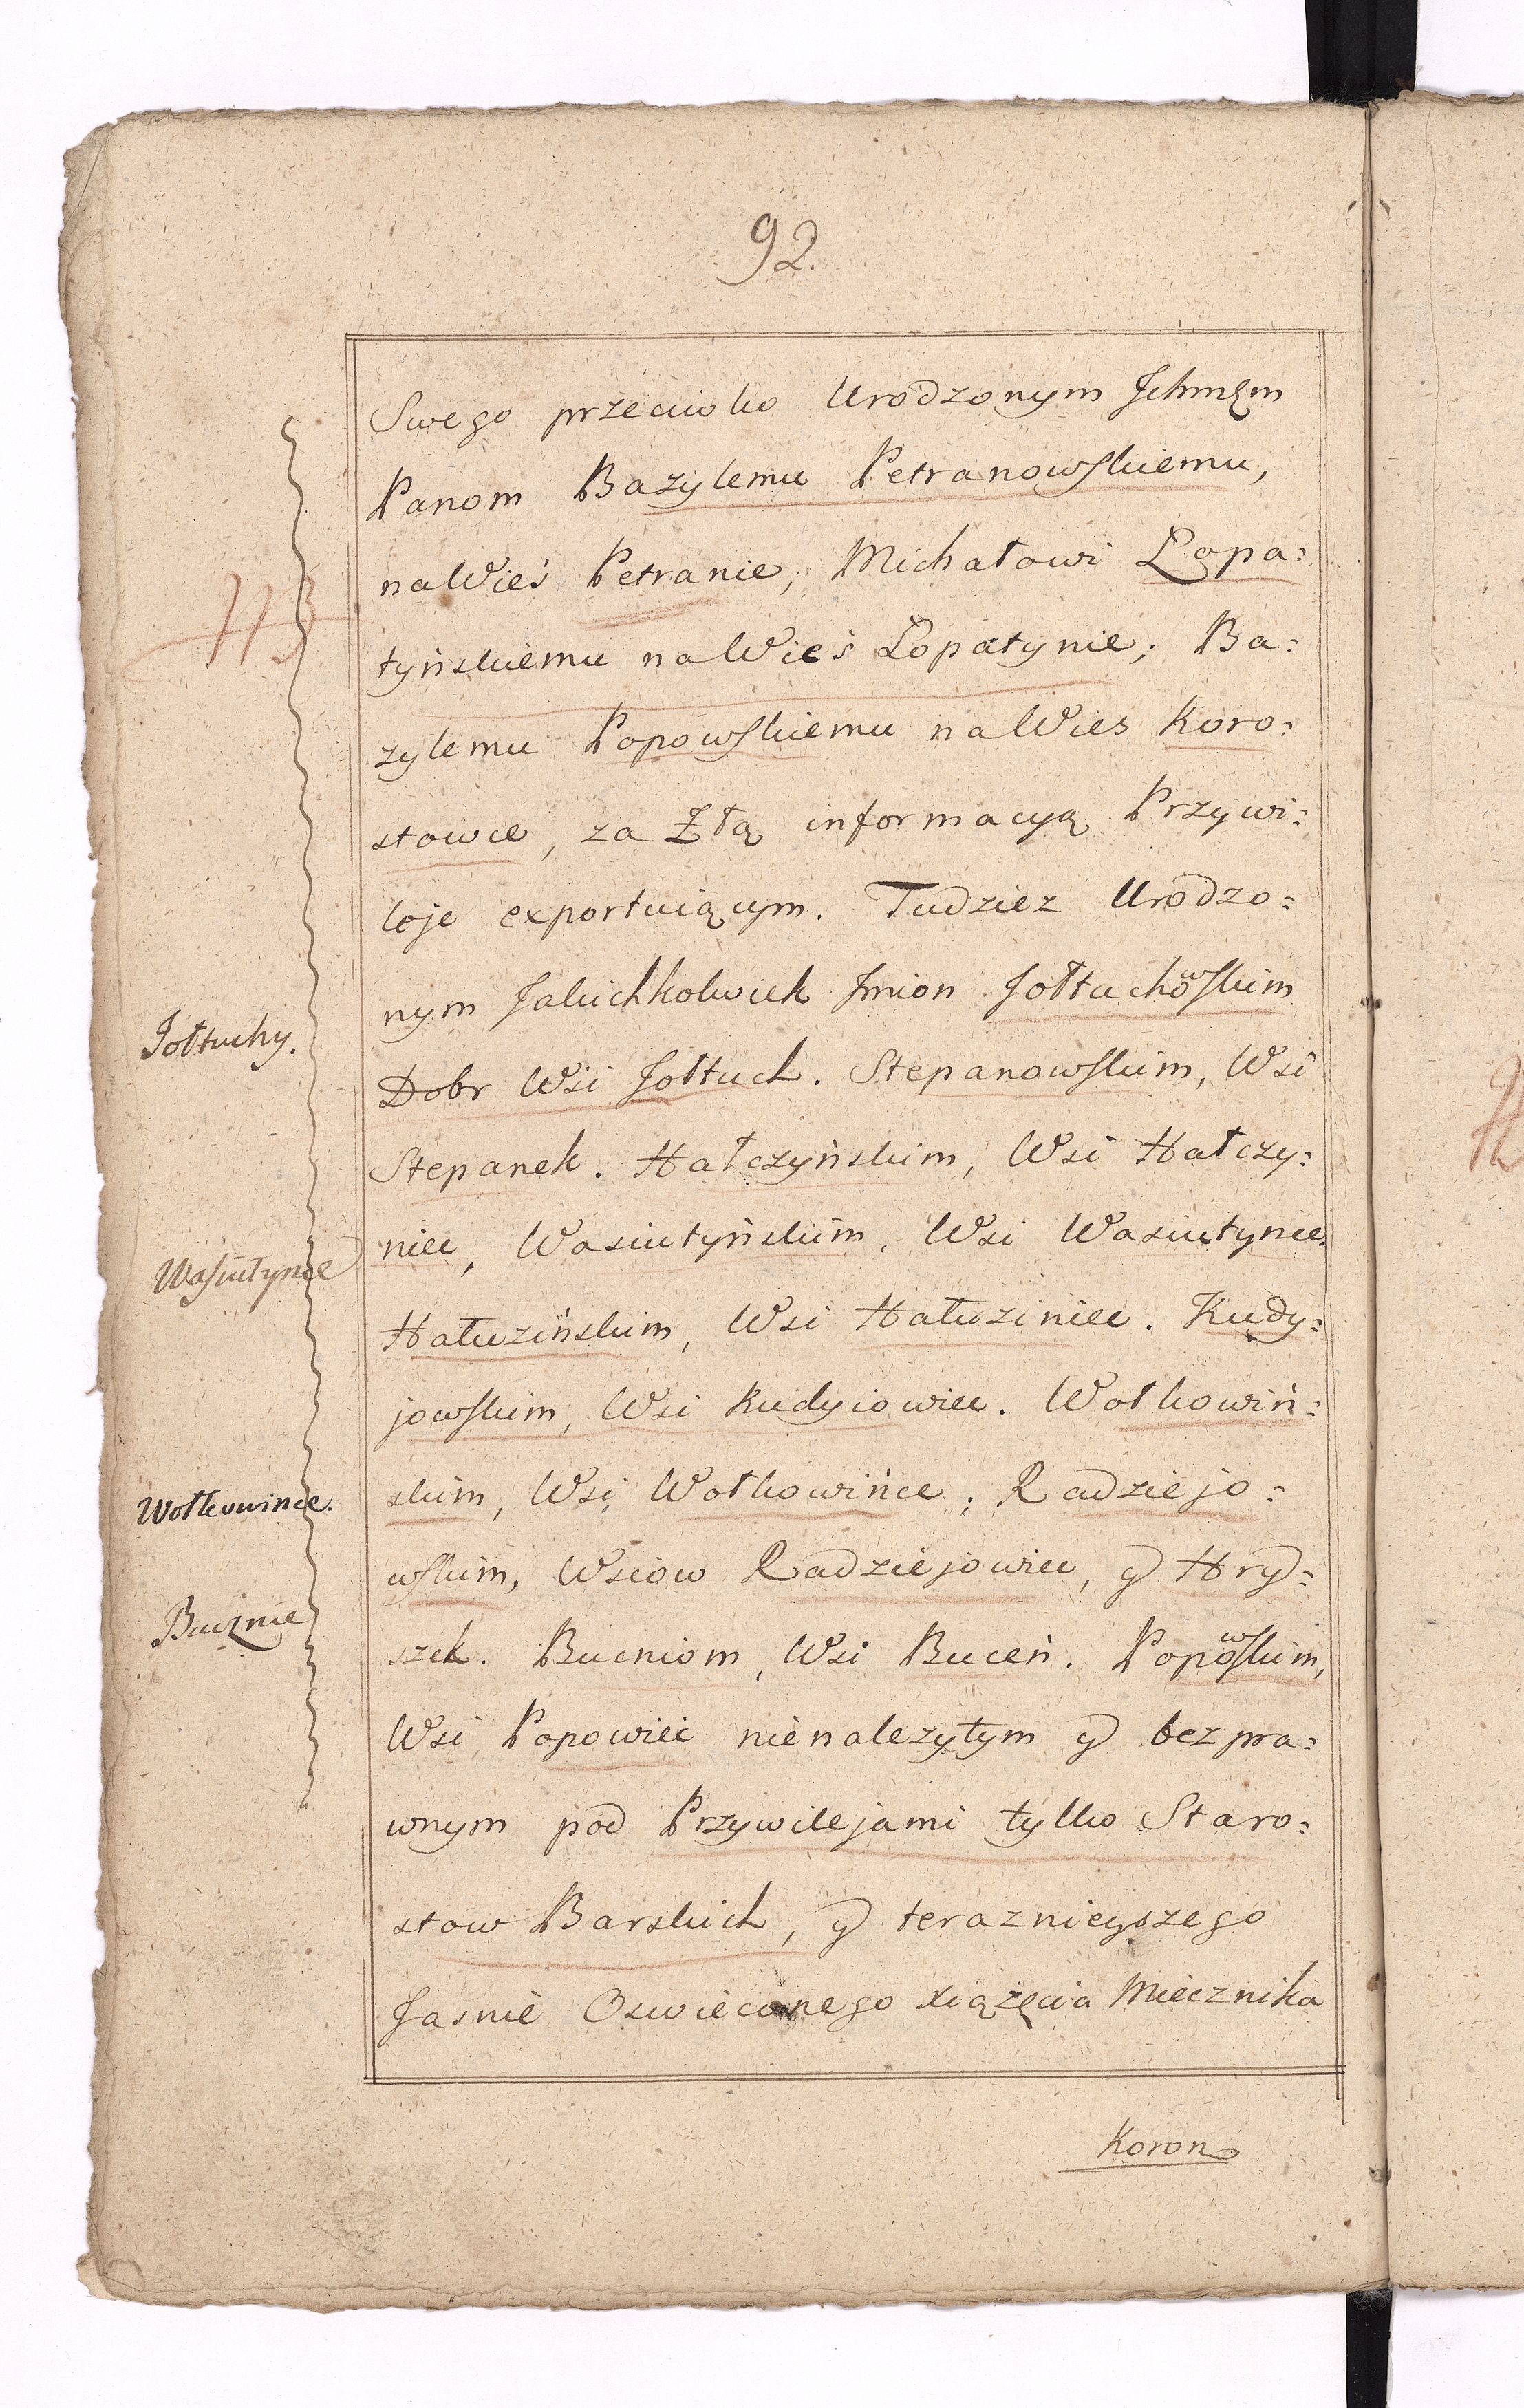 92.
Swego przeciwko Urodzonym Ichmçm
Panom Bazylemu Petranowskiemu,
na Wieś Petranie; Michałowi Łopa=
113
tyńskiemu na Wieś Łopatynie; Ba=
zylemu Popowskiemu na Wies Koro=
stowce, za Złą informacyą Przywi=
leje exportuiącym. Tudziez Urodzo=
nym Jakichkolwiek Imion Jołtuchowskim
Jołtuchy.
Dobr Wsi Jołtuch. Stepanowskim, Wsi
Stepanek. Hałczyńskim, Wsi Hałczy=
niec, Wasiutyńskim, Wsi Wasiutynce.
Wasiutynce
Hałuzińskim, Wsi Hałuziniec. Kudy=
jowskim, Wsi Kudyiowiec. Wołkowiń=
skim, Wsi Wołkowińce; Radziejo=
Wołkowince.
wskim, Wsiow Radziejowiec, y Hry=
Bucznie
szek. Bucniom, Wsi Buceń. Popowskim,
Wsi Popowiec nienalezytym y bezpra=
wnym pod Przywilejami tylko Staro=
stow Barskich, y teraznieyszego
Jasnie Oswieconego Xiążęcia Miecznika
Koron